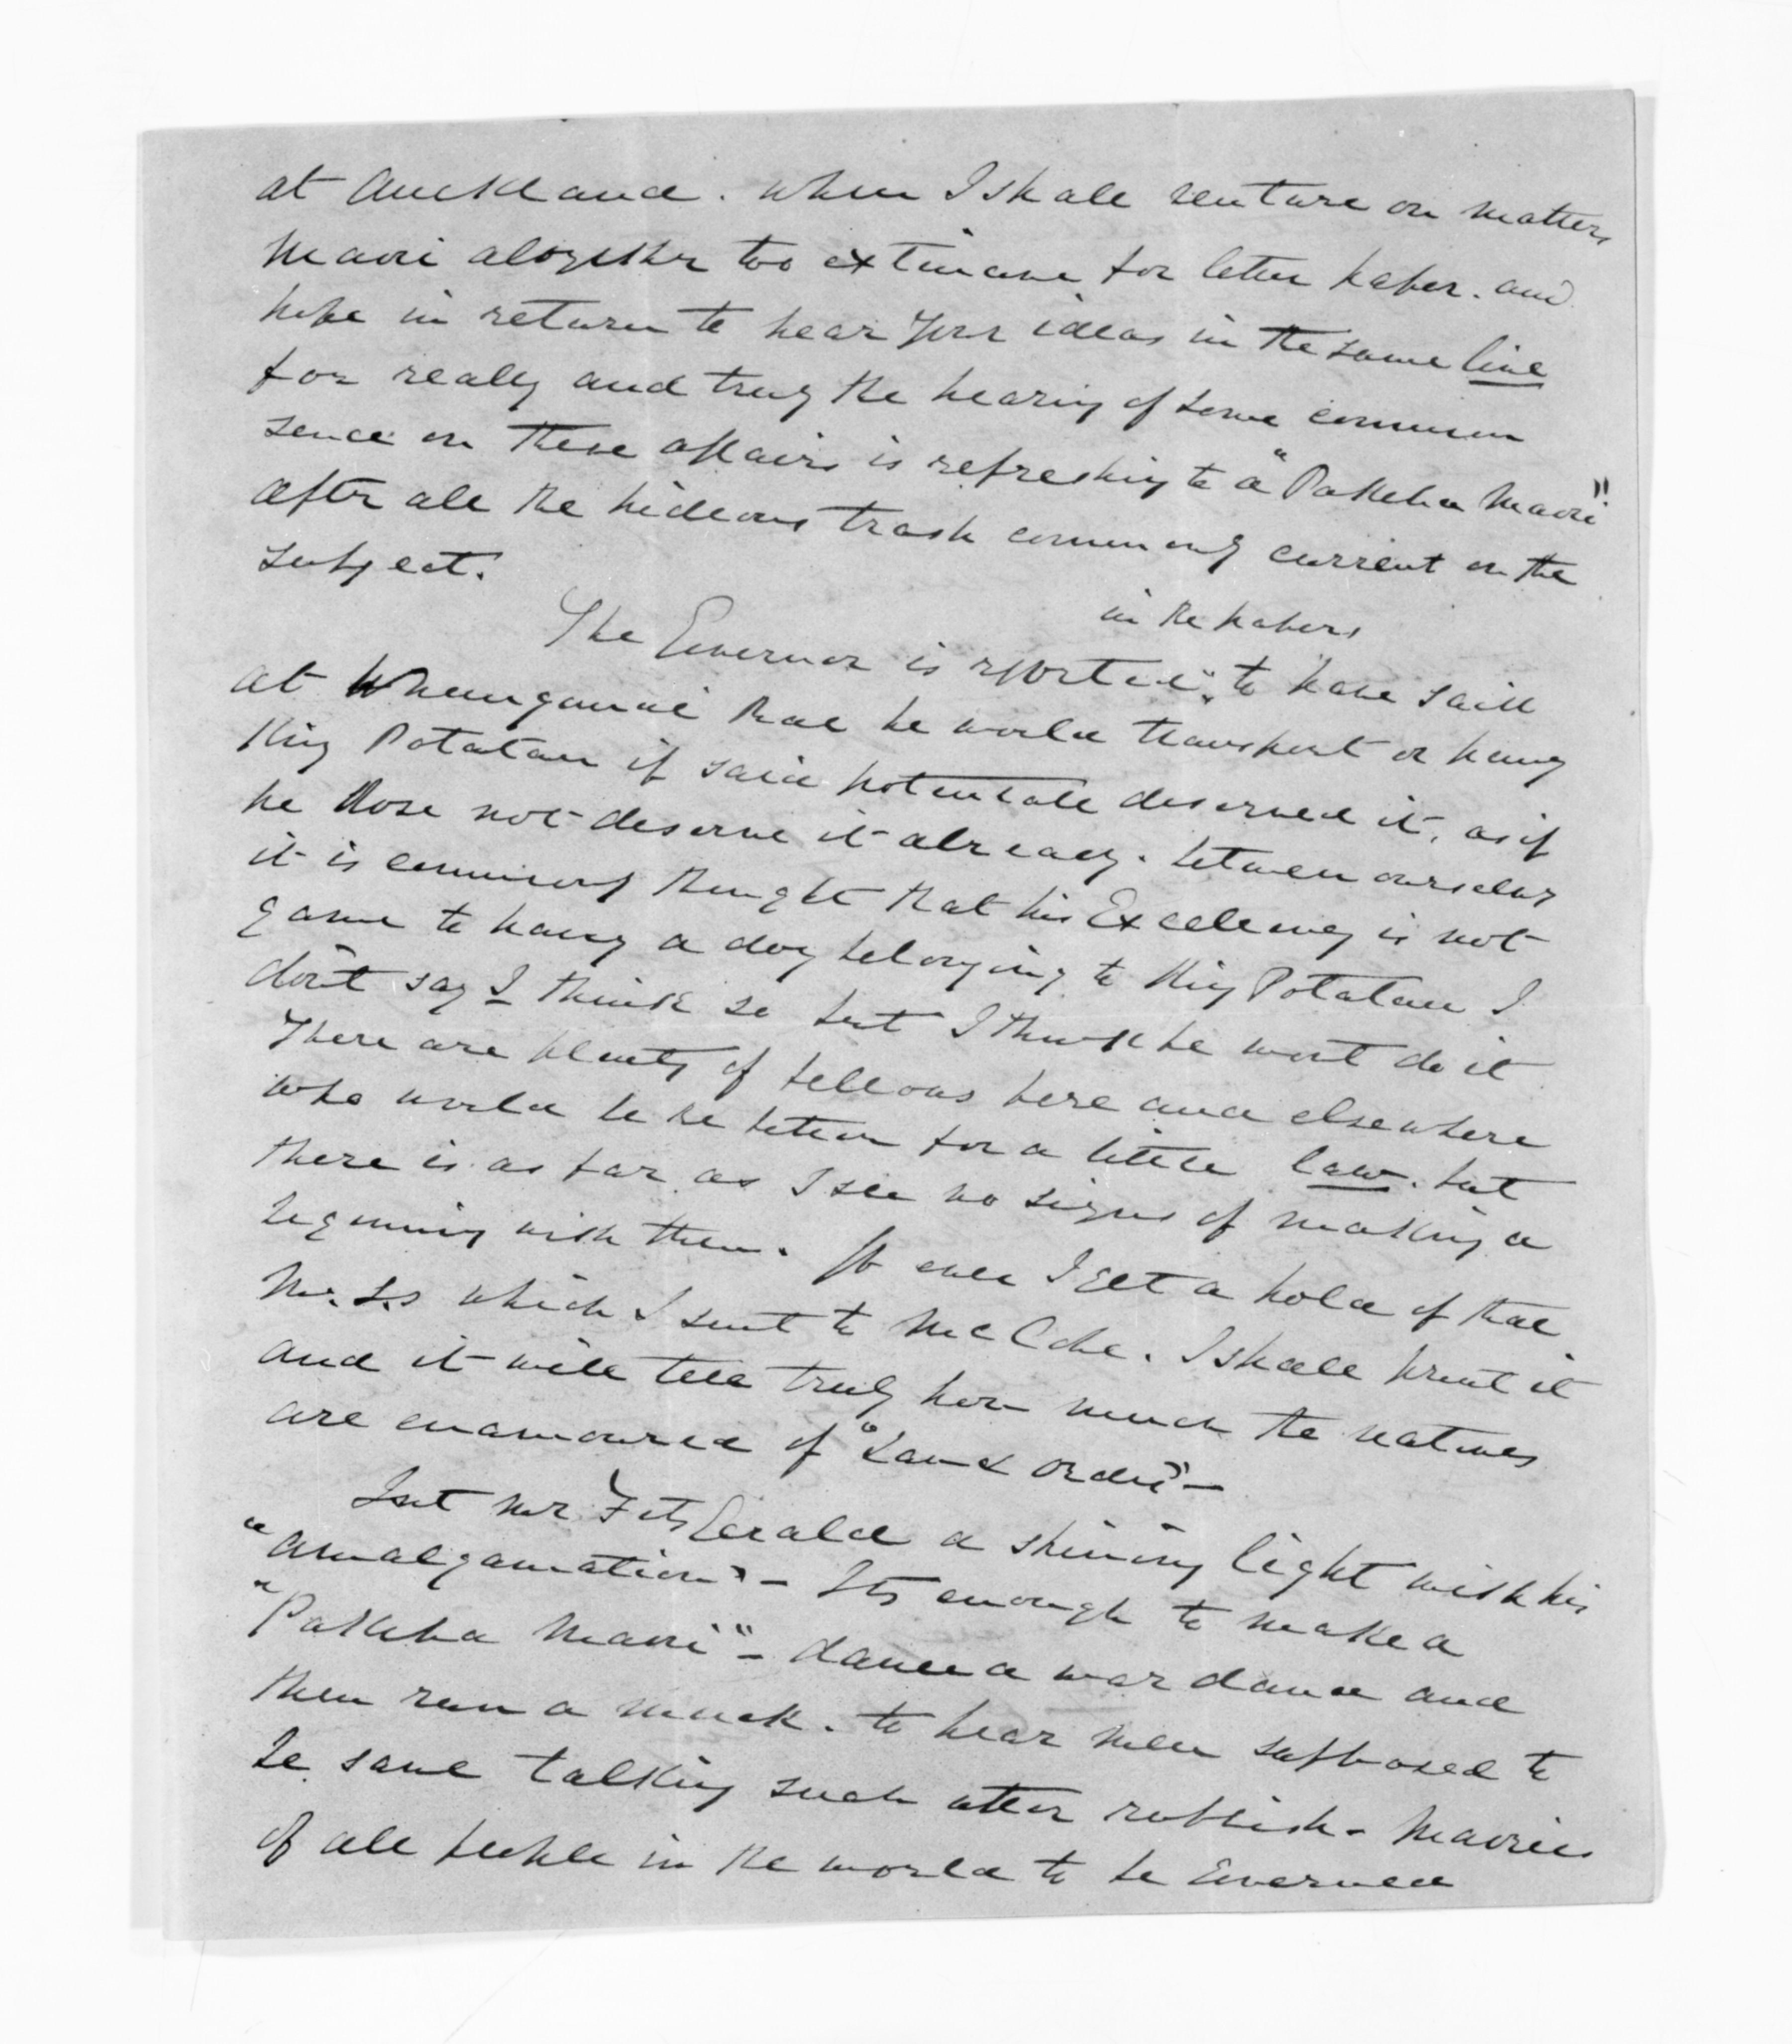 at Auckland. when I shall venture on matters
Maori alogether too extincive for letter paper. and
hope in return to hear your ideas in the same line
for really and truly the hearing of some common
sence on these affairs is refreshing to a "Pakeha Maori"
after all the hideous trash commonly current on the
subject.
in the papers
The Governor is reported to have said
at Whanganui that he would transport or hang
King Potatau if said potentate deserved it, as if
he dose not deserve it already. between ourselves
it is commonly thought that his Excellency is not
game to hang a dog belonging to King Potatau I
don't say I think so but I think he wont do it
There are plenty of fellows here and elsewhere
who would be the better for a little law. but
there is as far as I see no signs of making a
beginning with them. If ever I get a hold of that
M.S.S which I sent to I shall print it
and it will tell truly how much the natives
are enamoured of "Law & order" -
Isnt Mr FitzGerald a shining light with his
"amalgamation" - Its enough to make a
"Pakeha Maori" - dance a war dance and
then run a muck. to hear men supposed to
be sane talking such utter rubbish - Maories
of all people in the world to be Governed